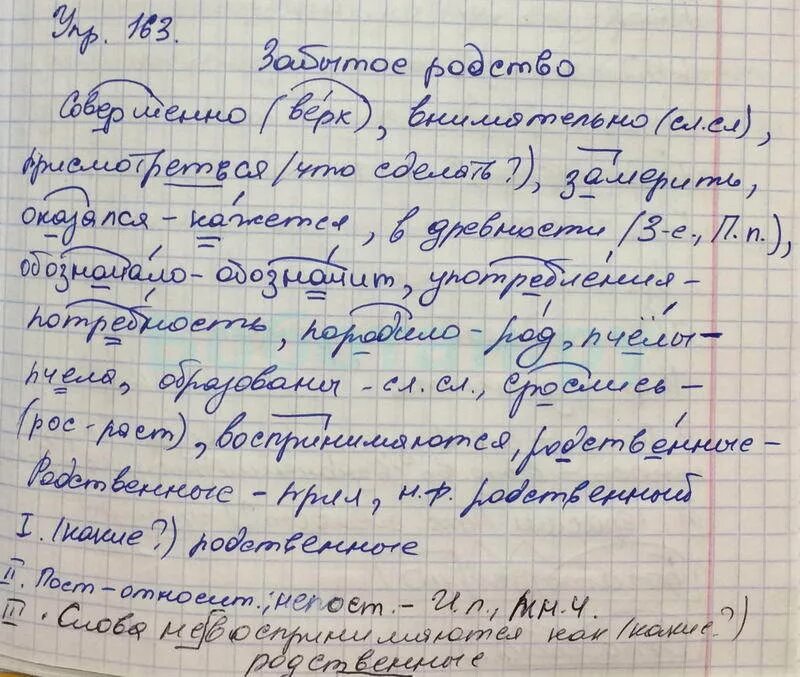 Упр. 163.
Забытое родство
Совершенно (верх), внимательно (сл.сл),
присмотреться (что сделать?), замерить,
оказался - кажется, в древности (3-е, П.п.),
обозначало - обозначит, употребления -
потребность, породило - род, пчёлы -
пчела, образованы - сл. сл., срослись -
(рос - раст), воспринимаются, родственные -
Родственные - прил, н.ф. родственный
I. (какие?) родственные
II. Пост - относит.; непост. - И.п., мн.ч.
III. Слова не воспринимаются как (какие?)
родственные